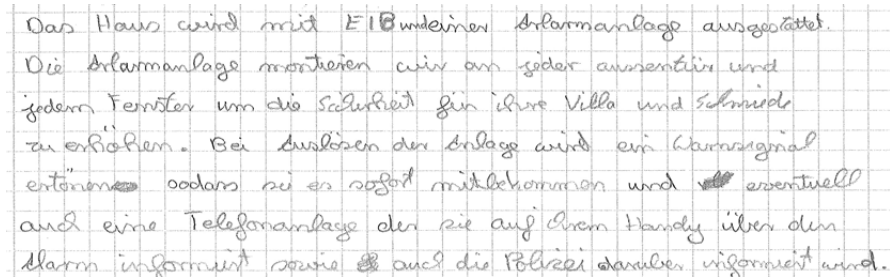 Das Haus wird mit EIB und einer Arlarmanlage ausgestattet.
Die Arlarmanlage montieren wir an jeder aussentür und
jedem Fenster um die Sicherheit für ihre Villa und Schmiede
zu erhöhen. Bei Auslösen der Anlage wird ein Warnsignal
ertönen sodass sie es sofort mitbekommen und eventuell
auch eine Telefonanlage der sie auf ihrem Handy über den
Alarm informiert sowie auch die Polizei darüber informiert wird.